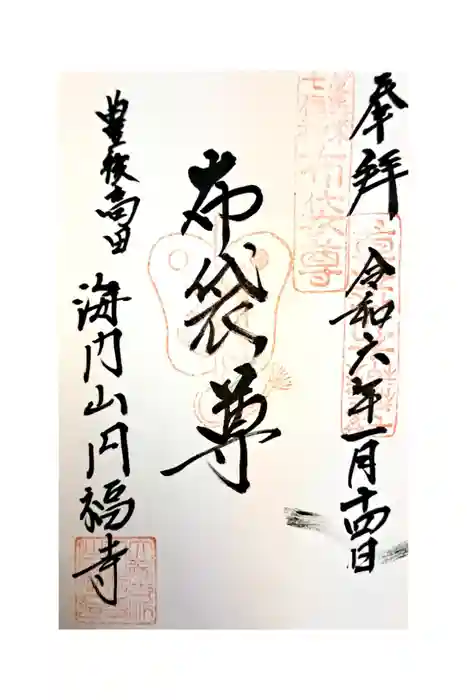 奉拝
令和六年一月十四日
布袋尊
布袋尊
豊後高田
海内山円福寺